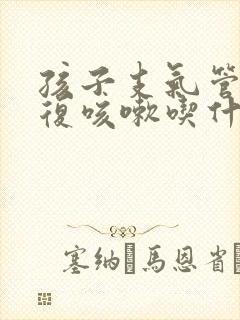 孩子支氣管
復咳嗽喫什
塞納 馬恩省